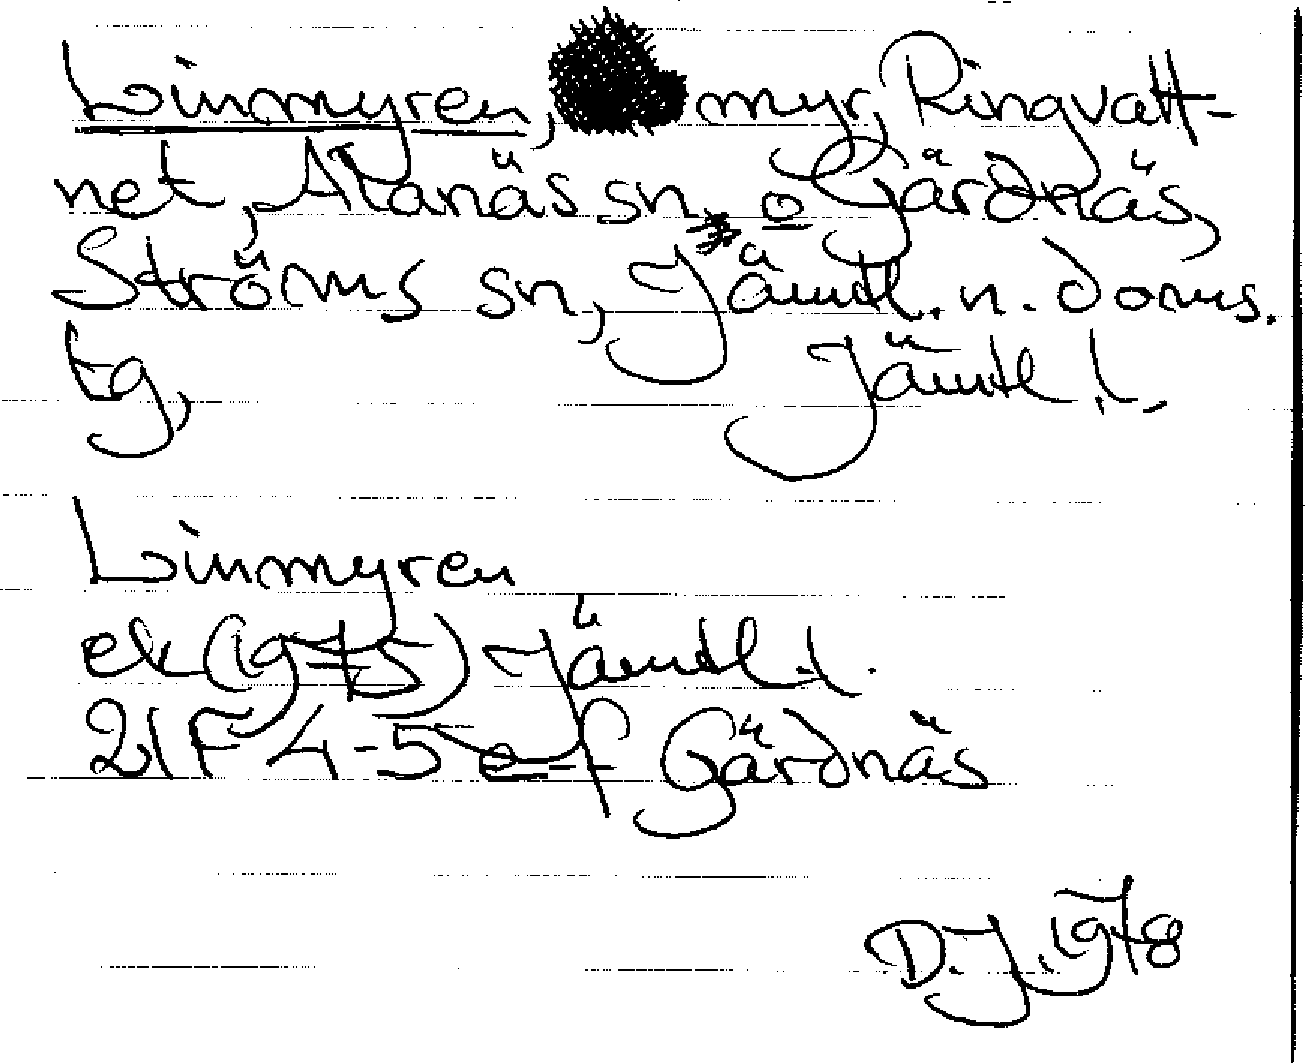 Linmyren, myr, Ringvatt-
net, Alanäs sn, o Gärdnäs,
Ströms sn, Jämtl. n. doms.
tg, Jämtl l.
Linmyren
ek (1975) Jämtl. l.
21F 4-5 e-f Gärdnäs
D.J. 1978